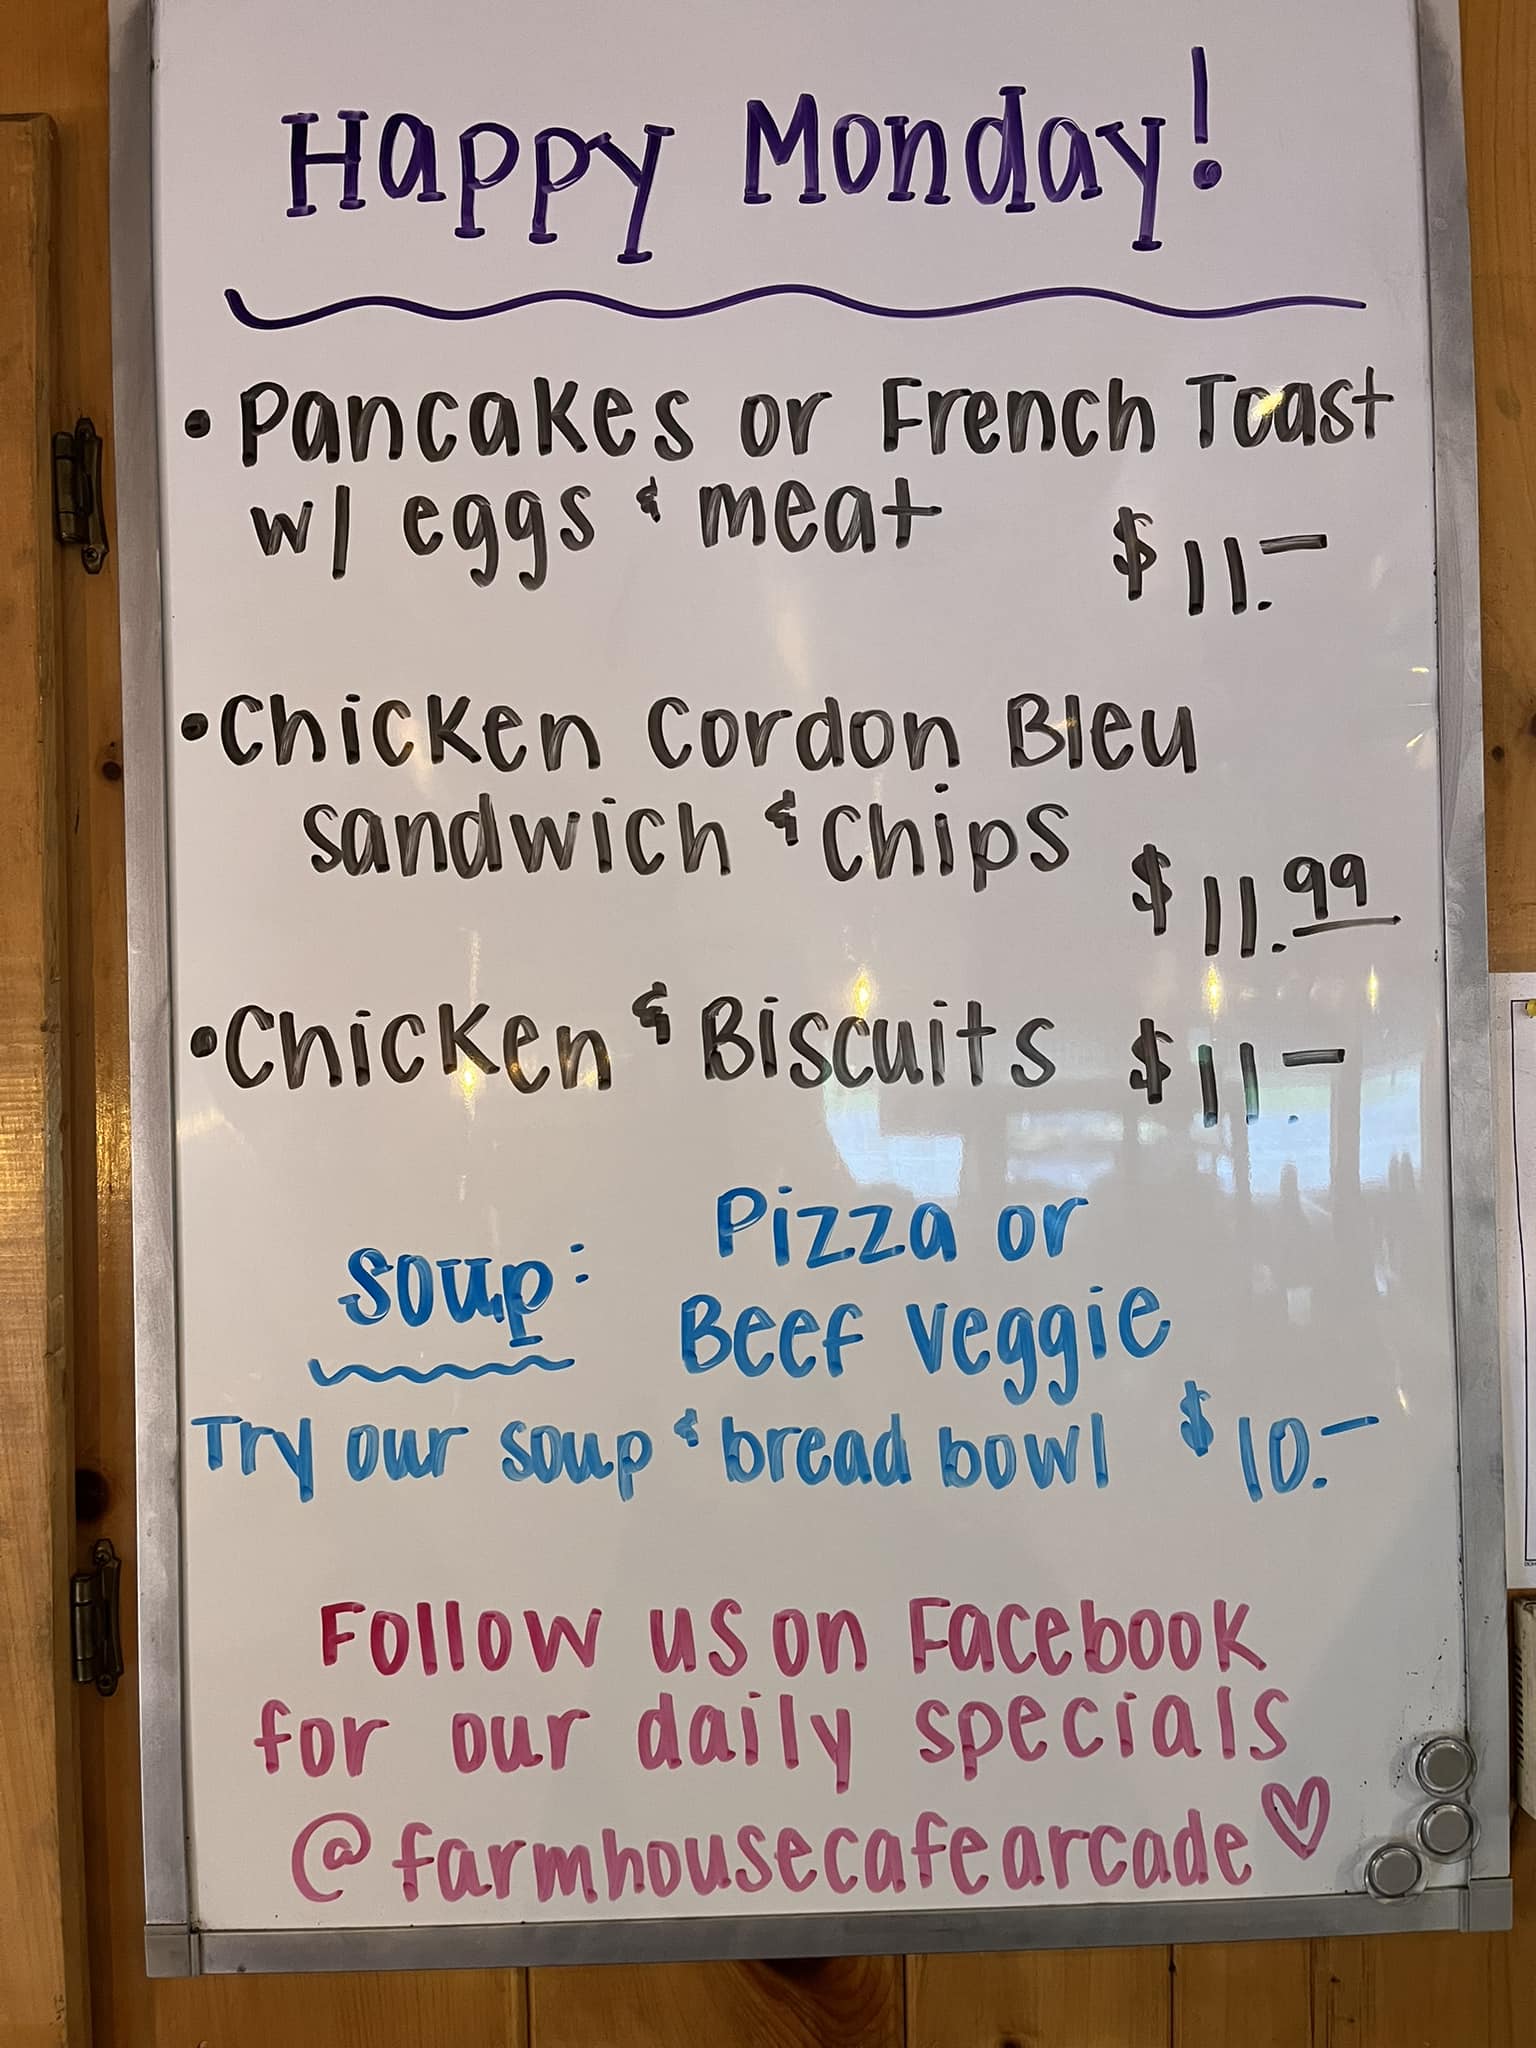 Happy Monday!
• Pancakes or French Toast
w/ eggs & meat $11.–
• Chicken Cordon Bleu
sandwich & chips $11.99
• Chicken & Biscuits $11.–
Soup: Pizza or
Beef Veggie
Try our soup & bread bowl $10.–
Follow us on Facebook
for our daily specials
@farmhousecafearcade ♡